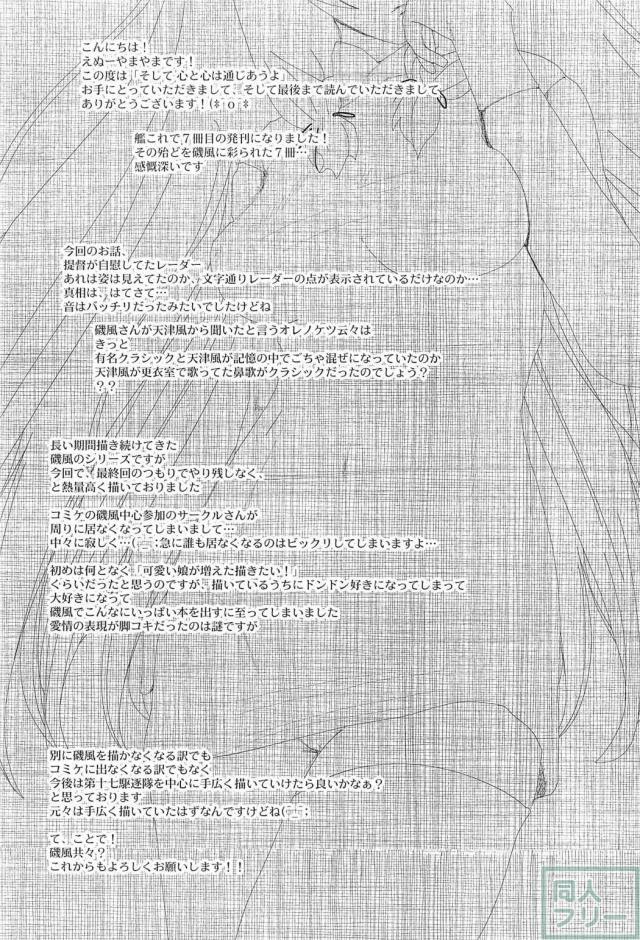 こんにちは！
えぬーやまやまです！
この度は「そして 心と心は通じあうよ」
お手にとっていただきまして、そして最後まで読んでいただきまして
ありがとうございます！(ﾈ¯o¯ﾈ
艦これで７冊目の発刊になりました！
その殆どを磯風に彩られた７冊…
感慨深いです
今回のお話、
提督が自慰してたレーダー
あれは姿は見えてたのか、文字通りレーダーの点が表示されているだけなのか…
真相は、はてさて…
音はバッチリだったみたいでしたけどね
磯風さんが天津風から聞いたと言うオレノケツ云々は
きっと
有名クラシックと天津風が記憶の中でごちゃ混ぜになっていたのか
天津風が更衣室で歌ってた鼻歌がクラシックだったのでしょう？
？？
長い期間描き続けてきた
磯風のシリーズですが
今回で、最終回のつもりでやり残しなく、
と熱量高く描いておりました
コミケの磯風中心参加のサークルさんが
周りに居なくなってしまいまして…
中々に寂しく…(￣―￣;急に誰も居なくなるのはビックリしてしまいますよ…
初めは何となく「可愛い娘が増えた描きたい！」
ぐらいだったと思うのですが、描いているうちにドンドン好きになってしまって
大好きになって
磯風でこんなにいっぱい本を出すに至ってしまいました
愛情の表現が脚コキだったのは謎ですが
別に磯風を描かなくなる訳でも
コミケに出なくなる訳でもなく
今後は第十七駆逐隊を中心に手広く描いていけたら良いかなぁ？
と思っております
元々は手広く描いていたはずなんですけどね(￣―￣;
て、ことで！
磯風共々？
これからもよろしくお願いします！！
同人
フリー